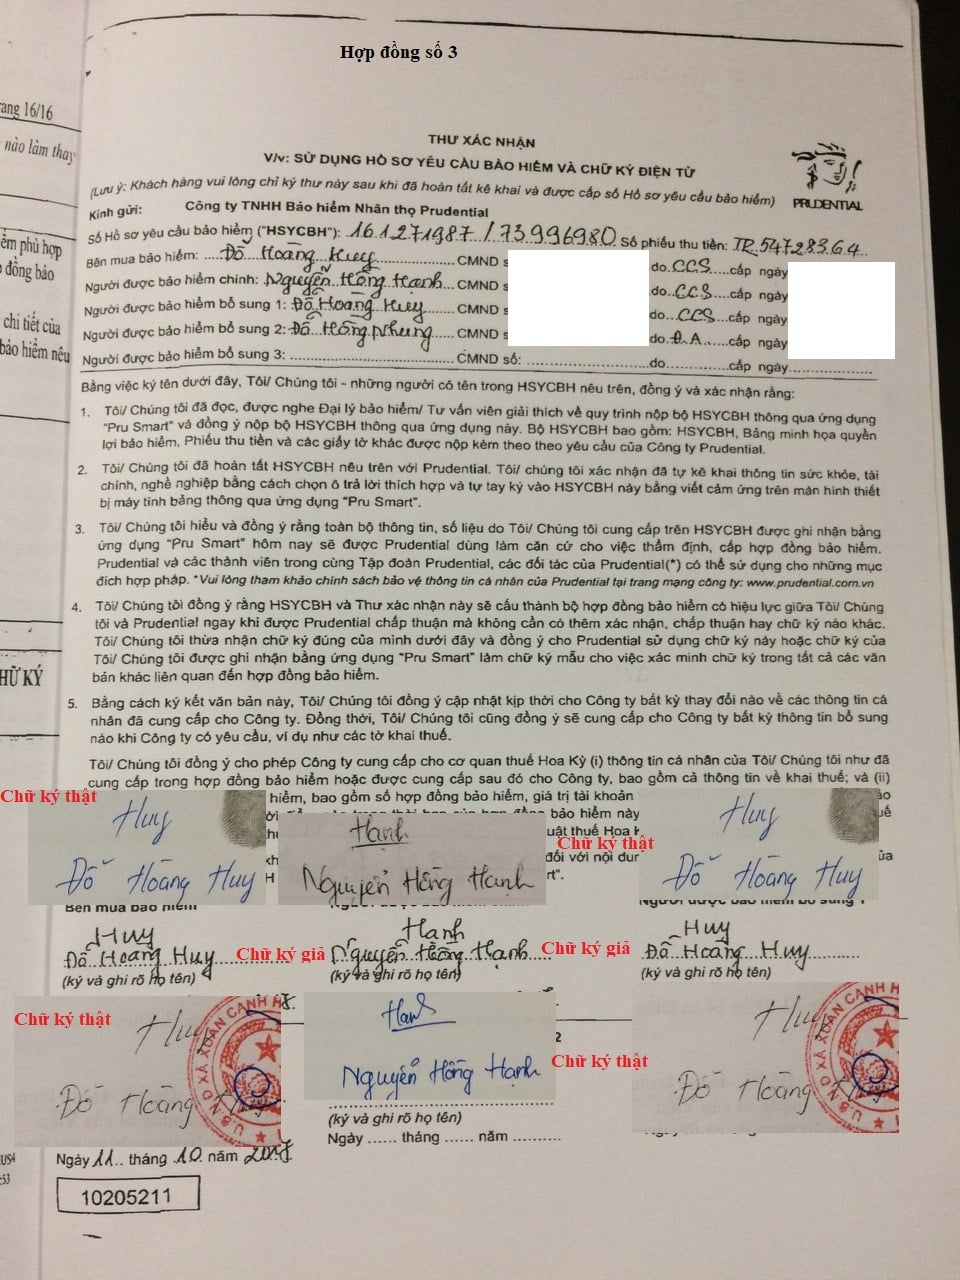 Hợp đồng số 3
rang 16/16
nào làm thay
THƯ XÁC NHẬN
V/v: SỬ DỤNG HỒ SƠ YÊU CẦU BẢO HIỂM VÀ CHỮ KÝ ĐIỆN TỬ
(Lưu ý: Khách hàng vui lòng chỉ ký thư này sau khi đã hoàn tất kê khai và được cấp số Hồ sơ yêu cầu bảo hiểm)
PRUDENTIAL
Kính gửi: Công ty TNHH Bảo hiểm Nhân thọ Prudential
Số Hồ sơ yêu cầu bảo hiểm ("HSYCBH"): 161271987 / 73996980 Số phiếu thu tiền: IR 54728364
Bên mua bảo hiểm: Đỗ Hoàng Huy CMND s do CCS cấp ngày
Người được bảo hiểm chính: Nguyễn Hồng Hạnh CMND s do CCS cấp ngày
Người được bảo hiểm bổ sung 1: Đỗ Hoàng Huy CMND s do CCS cấp ngày
Người được bảo hiểm bổ sung 2: Đỗ Hồng Nhung CMND s do Đ.A. cấp ngày
Người được bảo hiểm bổ sung 3: CMND số: do cấp ngày
ểm phù hợp
đồng bảo
chi tiết của
bảo hiểm nêu
Bằng việc ký tên dưới đây, Tôi/ Chúng tôi - những người có tên trong HSYCBH nêu trên, đồng ý và xác nhận rằng:
1. Tôi/ Chúng tôi đã đọc, được nghe Đại lý bảo hiểm/ Tư vấn viên giải thích về quy trình nộp bộ HSYCBH thông qua ứng dụng
"Pru Smart" và đồng ý nộp bộ HSYCBH thông qua ứng dụng này. Bộ HSYCBH bao gồm: HSYCBH, Bảng minh họa quyền
lợi bảo hiểm, Phiếu thu tiền và các giấy tờ khác được nộp kèm theo theo yêu cầu của Công ty Prudential.
2. Tôi/ Chúng tôi đã hoàn tất HSYCBH nêu trên với Prudential. Tôi/ chúng tôi xác nhận đã tự kê khai thông tin sức khỏe, tài
chính, nghề nghiệp bằng cách chọn ô trả lời thích hợp và tự tay ký vào HSYCBH này bằng viết cảm ứng trên màn hình thiết
bị máy tính bảng thông qua ứng dụng "Pru Smart".
3. Tôi/ Chúng tôi hiểu và đồng ý rằng toàn bộ thông tin, số liệu do Tôi/ Chúng tôi cung cấp trên HSYCBH được ghi nhận bằng
ứng dụng "Pru Smart" hôm nay sẽ được Prudential dùng làm căn cứ cho việc thẩm định, cấp hợp đồng bảo hiểm.
Prudential và các thành viên trong cùng Tập đoàn Prudential, các đối tác của Prudential(*) có thể sử dụng cho những mục
đích hợp pháp. *Vui lòng tham khảo chính sách bảo vệ thông tin cá nhân của Prudential tại trang mạng công ty: www.prudential.com.vn
4. Tôi/ Chúng tôi đồng ý rằng HSYCBH và Thư xác nhận này sẽ cấu thành bộ hợp đồng bảo hiểm có hiệu lực giữa Tôi/ Chúng
tôi và Prudential ngay khi được Prudential chấp thuận mà không cần có thêm xác nhận, chấp thuận hay chữ ký nào khác.
Tôi/ Chúng tôi thừa nhận chữ ký đúng của mình dưới đây và đồng ý cho Prudential sử dụng chữ ký này hoặc chữ ký của
Tôi/ Chúng tôi được ghi nhận bằng ứng dụng "Pru Smart" làm chữ ký mẫu cho việc xác minh chữ ký trong tất cả các văn
bản khác liên quan đến hợp đồng bảo hiểm.
HỮ KÝ
5. Bằng cách ký kết văn bản này, Tôi/ Chúng tôi đồng ý cập nhật kịp thời cho Công ty bất kỳ thay đổi nào về các thông tin cá
nhân đã cung cấp cho Công ty. Đồng thời, Tôi/ Chúng tôi cũng đồng ý sẽ cung cấp cho Công ty bất kỳ thông tin bổ sung
nào khi Công ty có yêu cầu, ví dụ như các tờ khai thuế.
Tôi/ Chúng tôi đồng ý cho phép Công ty cung cấp cho cơ quan thuế Hoa Kỳ (i) thông tin cá nhân của Tôi/ Chúng tôi như đã
cung cấp trong hợp đồng bảo hiểm hoặc được cung cấp sau đó cho Công ty, bao gồm cả thông tin về khai thuế; và (ii)
hiểm, bao gồm số hợp đồng bảo hiểm, giá trị tài khoản
bảo hiểm này
uật thuế Hoa
đối với nội dun
Chữ ký thật
Huy
Đỗ Hoàng Huy
Hạnh
Nguyễn Hồng Hạnh
Chữ ký thật
Huy
Đỗ Hoàng Huy
Bên mua bảo hiểm
Người được bảo hiểm bổ sung 1
Huy
Đỗ Hoàng Huy
(ký và ghi rõ họ tên)
Chữ ký giả
Hạnh
Nguyễn Hồng Hạnh
(ký và ghi rõ họ tên)
Chữ ký giả
Huy
Đỗ Hoàng Huy
(ký và ghi rõ họ tên)
Chữ ký thật
Huy
Đỗ Hoàng Huy
U.B.N.D XÃ XUÂN CANH
Hạnh
Nguyễn Hồng Hạnh
Chữ ký thật
Huy
Đỗ Hoàng
U.B.N.D XÃ XUÂN CANH
(ký và ghi rõ họ tên)
Ngày ...... tháng ...... năm ..........
Ngày 11 tháng 10 năm 2017
10205211